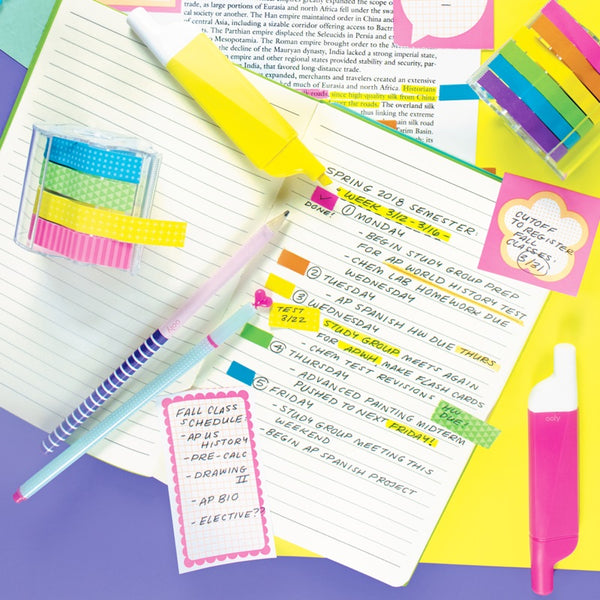 trade, as large portions of Eurasia and north Africa fell under the sway
cal society or another. The Han empire maintained order in China and
of central Asia, including a sizable corridor offering access to Bactr
The Parthian empire displaced the Seleucids in Persia and
Mesopotamia. The Roman empire brought order to the
the decline of the Mauryan dynasty, India lacked a strong imperial state,
empire and other regional states provided stability and security, par-
India, that favored long-distance trade.
expanded, merchants and travelers created an extensive
ked much of Eurasia and north Africa. Historians
silk roads, since high-quality silk from China
over the roads. The overland silk
thus linking the extreme
silk road
Tarim Basin.
SPRING 2018 SEMESTER:
* WEEK 3/12-3/16-
DONE!
① MONDAY
- BEGIN STUDY GROUP PREP
FOR AP WORLD HISTORY TEST
WEDNESDAY
- CHEM LAB HOMEWORK DUE
② TUESDAY
- AP SPANISH HW DUE THURS
③ WEDNESDAY
TEST
3/22
STUDY GROUP MEETS AGAIN
FOR APWH MAKE FLASH CARDS
- CHEM TEST REVISIONS
④ THURSDAY
- ADVANCED PAINTING MIDTERM
PUSHED TO NEXT FRIDAY!
HW
DUE!
⑤ FRIDAY
- STUDY GROUP MEETING THIS
WEEKEND
- BEGIN AP SPANISH PROJECT
CUTOFF
TO REGISTER
FALL
CLASSES:
(3/31)
FALL CLASS
SCHEDULE:
- AP US
HISTORY
- PRE-CALC
- DRAWING
II
- AP BIO
- ELECTIVE??
ooly
ooly